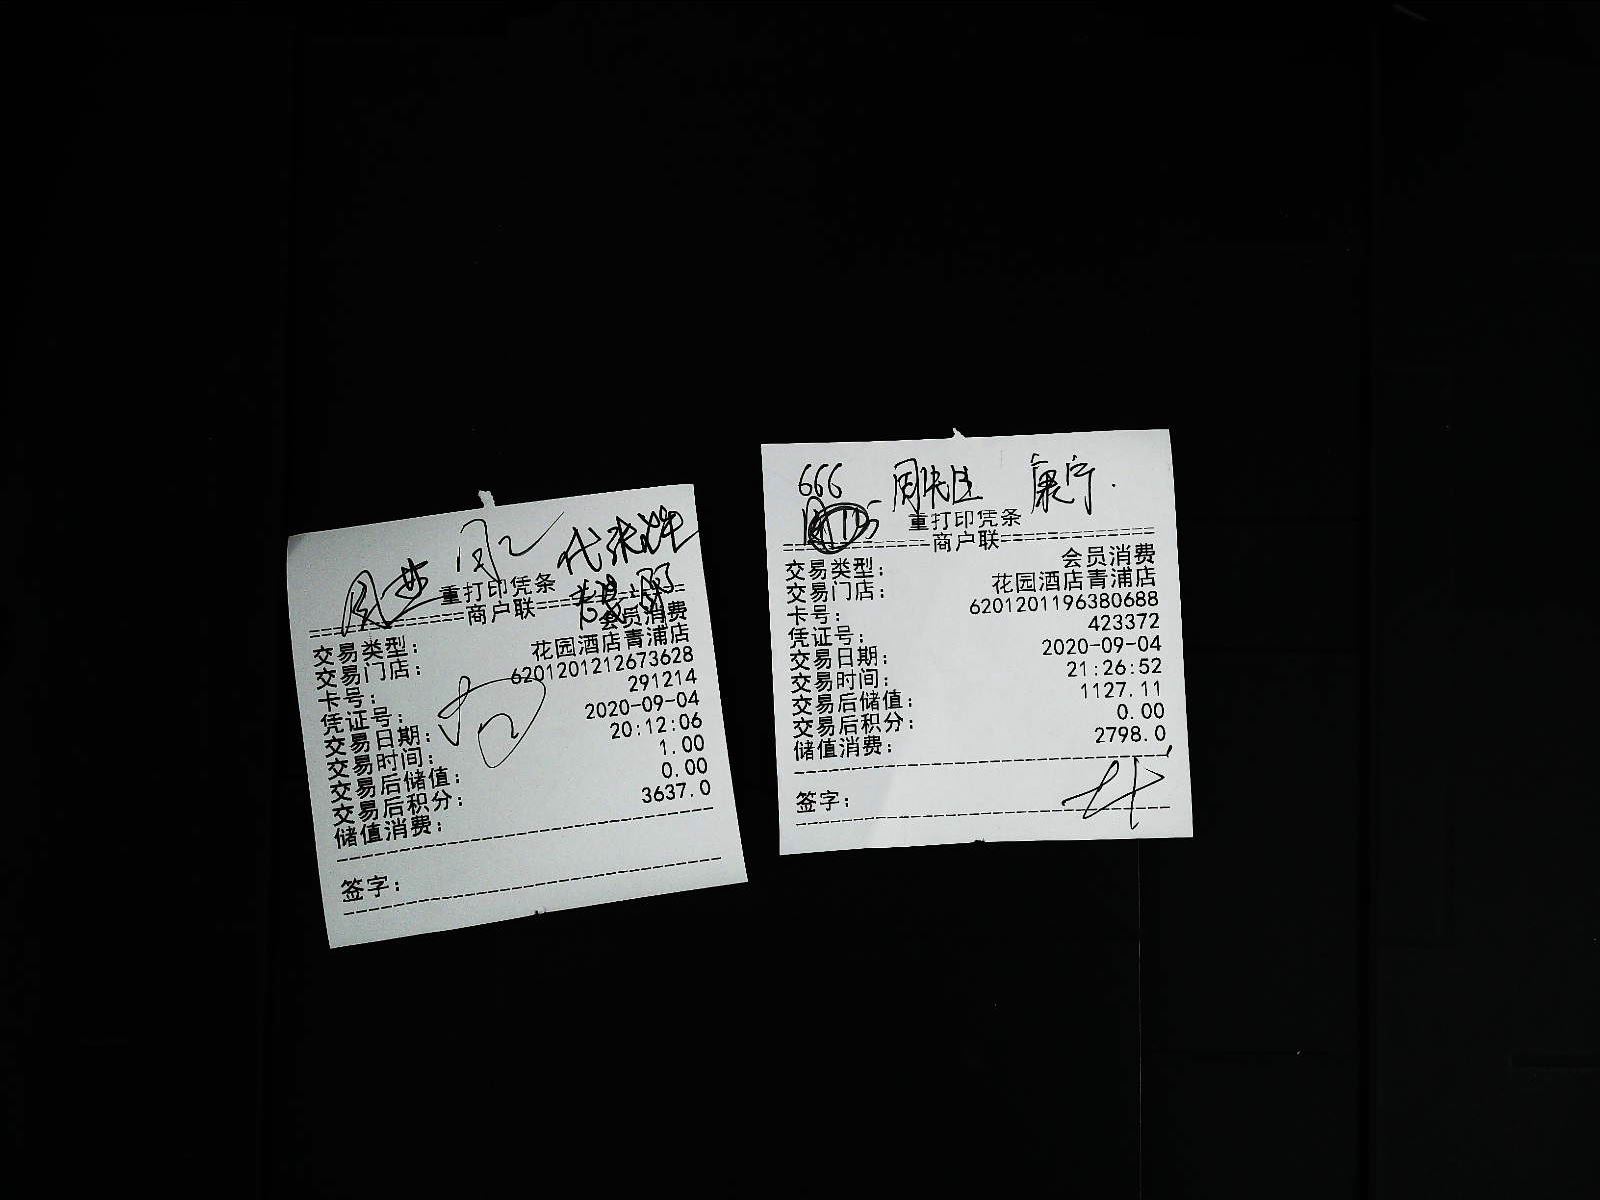 重打印凭条
==============商户联==============
交易类型: 会员消费
交易门店: 花园酒店青浦店
卡号: 6201201212673628
凭证号: 291214
交易日期: 2020-09-04
交易时间: 20:12:06
交易后储值: 1.00
交易后积分: 0.00
储值消费: 3637.0
签字:
666 康宁
重打印凭条
==============商户联==============
交易类型: 会员消费
交易门店: 花园酒店青浦店
卡号: 6201201196380688
凭证号: 423372
交易日期: 2020-09-04
交易时间: 21:26:52
交易后储值: 1127.11
交易后积分: 0.00
储值消费: 2798.0
签字: